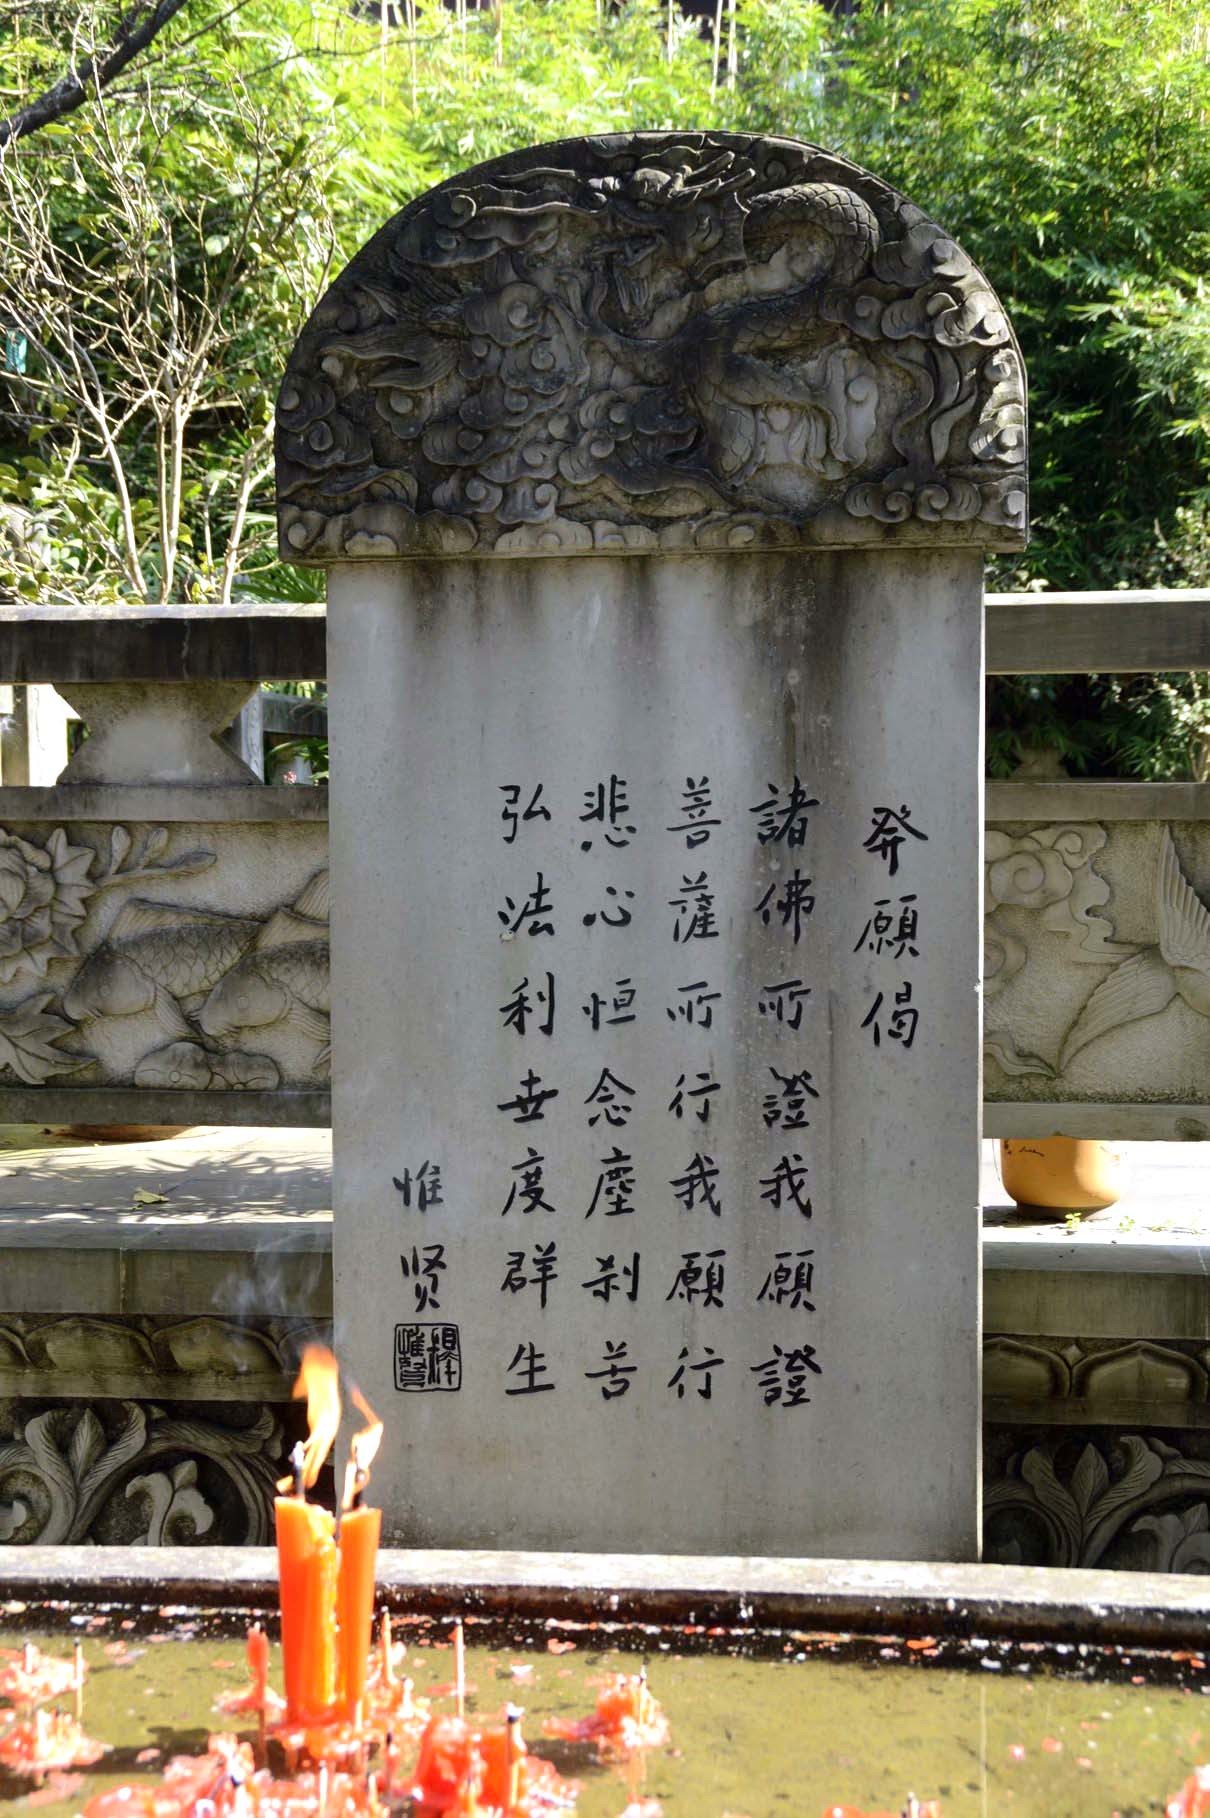 發願偈
諸佛所證我願證
菩薩所行我願行
悲心恒念塵刹苦
弘法利世度群生
惟贤
釋惟賢